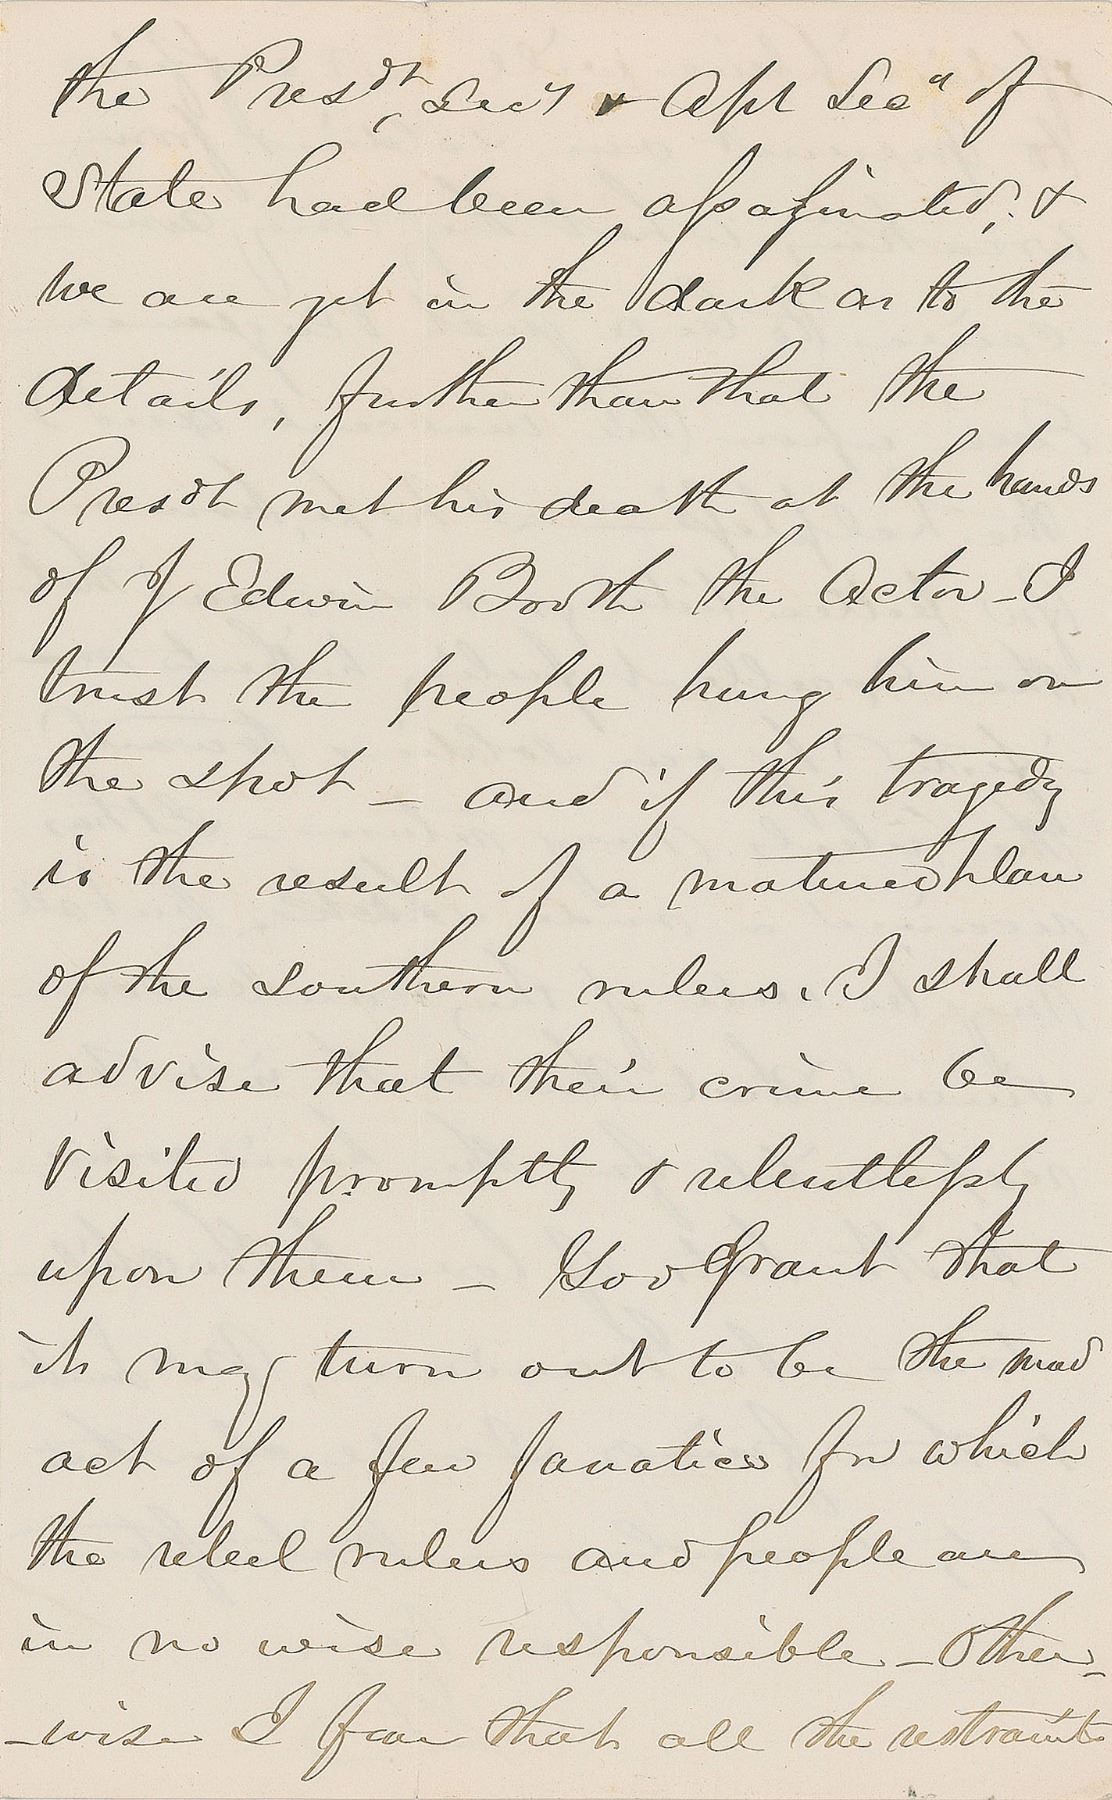 the Presdt, Secy & Asst Secy of
State had been assassinated, &
we are yet in the dark as to the
details, further than that the
Presdt met his death at the hands
of J Edwin Booth the Actor - I
trust the people hung him on
the spot - and if this tragedy
is the result of a matured plan
of the southern rulers, I shall
advise that their crime be
visited promptly & relentlessly
upon them - God Grant that
it may turn out to be the mad
act of a few fanatics for which
the rebel rulers and people are
in no wise responsible - Other-
-wise I fear that all the restraints